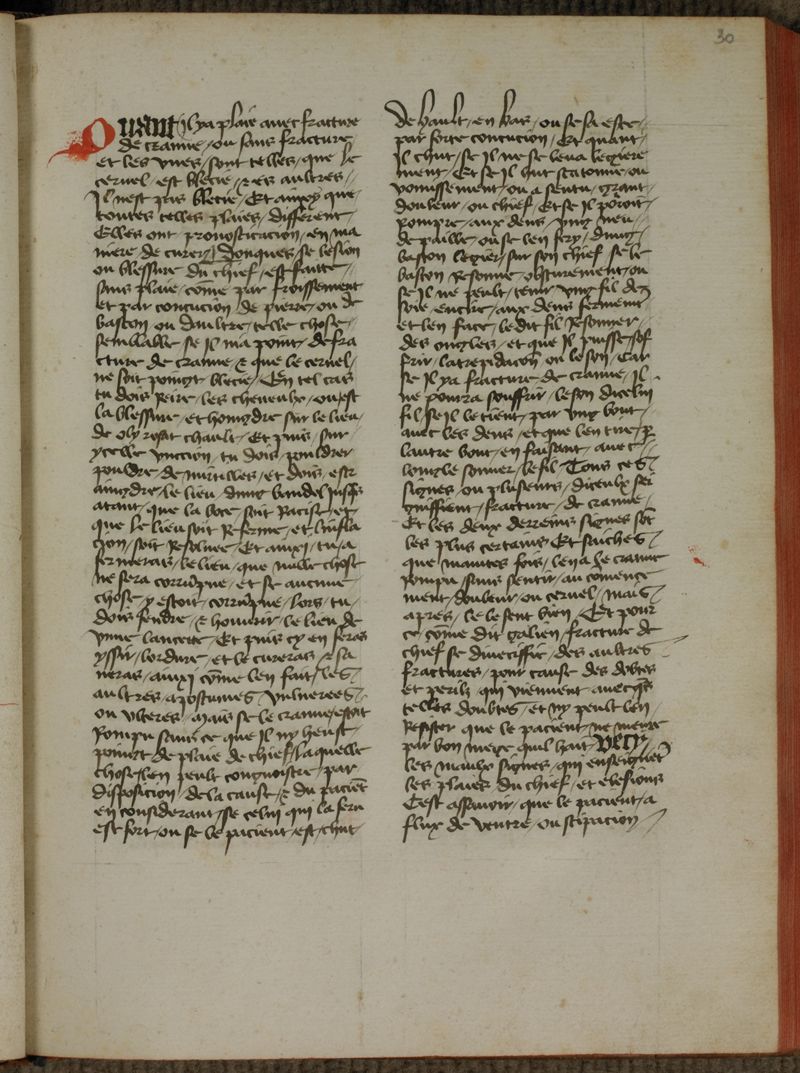 30
Quant Il ya plaie auec fracture
de cranne / ou sans fracture
et les vnes / sont telles / que le
ceruel / est blecie / & es aultres /
Il nest pas blecie / Et ainxy que
toutes telles plaies / different
Elles ont pronosticacion / en ma
niere de curer / Donques / se lesion
ou blessure du chief / est faitte /
sans plaie / come par froissement
et par contucion / de pierre / ou de
baston ou daultre / telle chose
semblable se Il ny a point / de fra
cture de cranne / & que le ceruel /
ne soit point blecie / En tel cas
tu dois Reire / les cheueulx / ou est
la blessure / et hoingdre sur le lieu /
de oly rosat chault / Et puis / sur
ycelle vnccion / tu dois pouldrer
pouldre / de mirtilles / et dois / estr
aingdre / le lieu / dung bandel jusqs
atant / que la bote / soit Racise / et
que le lieu soit Referme / et linfla
cion / soit Resoluee / Et ainxi / tu a
fermeras / le lieu / que nulle chose
ne sera corrupue / et se aucune
chose / y estoit / corrupue / lors / tu
dois fendre / & houurir / le lieu de
vnne lancete / Et puis cy en feras
yssir / lordure / et le cureras / & sa
neras / ainxi come len fait / les
aultres / apostumes / vulnerees /
ou vlteres / Mais se le cranne / estoit
Rompu / sans ce que Il ny heust
poingt de plaie de chief / laquelle
chose / len peult congnoistre / par
disposicion / de la cause / & du pacient
en considerant / se celui qui la feru
est fort / ou se le pacient / est / chut
de hault / en bas / ou se sa este
par forte contucion / Et quant
Il chut / se Il ne se leua legiere
ment / Et se Il hut scatomie / ou
vomissement / ou a sentu / grant
douleur / ou chief / Et se Il poroit
Rompre / aux dens / vng neu
de paille / ou se len fery / dung
baston legier / sur son chief / se le
baston Resonne / obscurement / ou
se Il ne peult / tenir vng fil de
soie / encire / aux dens ferment
et len face / le dit fil Resonner /
des ongles / et que Il puisse sof
frir / latrepidacion ou le son / Car
se Il ya fracture de cranne / Il
ne pourra souffrir / le son dicelui
fil / se Il le tient / par vng bout
auec les dens / et que len tire / p
lautre bout / en faisant / auec
longle sonner / le fil / Tous ces
signes / ou plusieurs / diceulx sei
gniffient / fracture / de cranne
Et les deux derreins signes sot
les plus certains / Et saches
que maintes fois / len a le cranne
rompu / sans sentir / au comence
ment / douleur / ou ceruel / mais
apres / le le sent bien / Et pour
ce come dit galien / fracture de
chief se diuersiffie / des aultres
fractures / pour cause des dobtes
et perilz qui viennent auecqs
telles doubtes / et ny peult len
Resister que le pacient / ne meure
par bon mege quil hait /
les maulx signes / qui enseignet
les plaies du chief / et elesions
Cest assauoir / que le pacient / a
flux de ventre / ou stipacion /